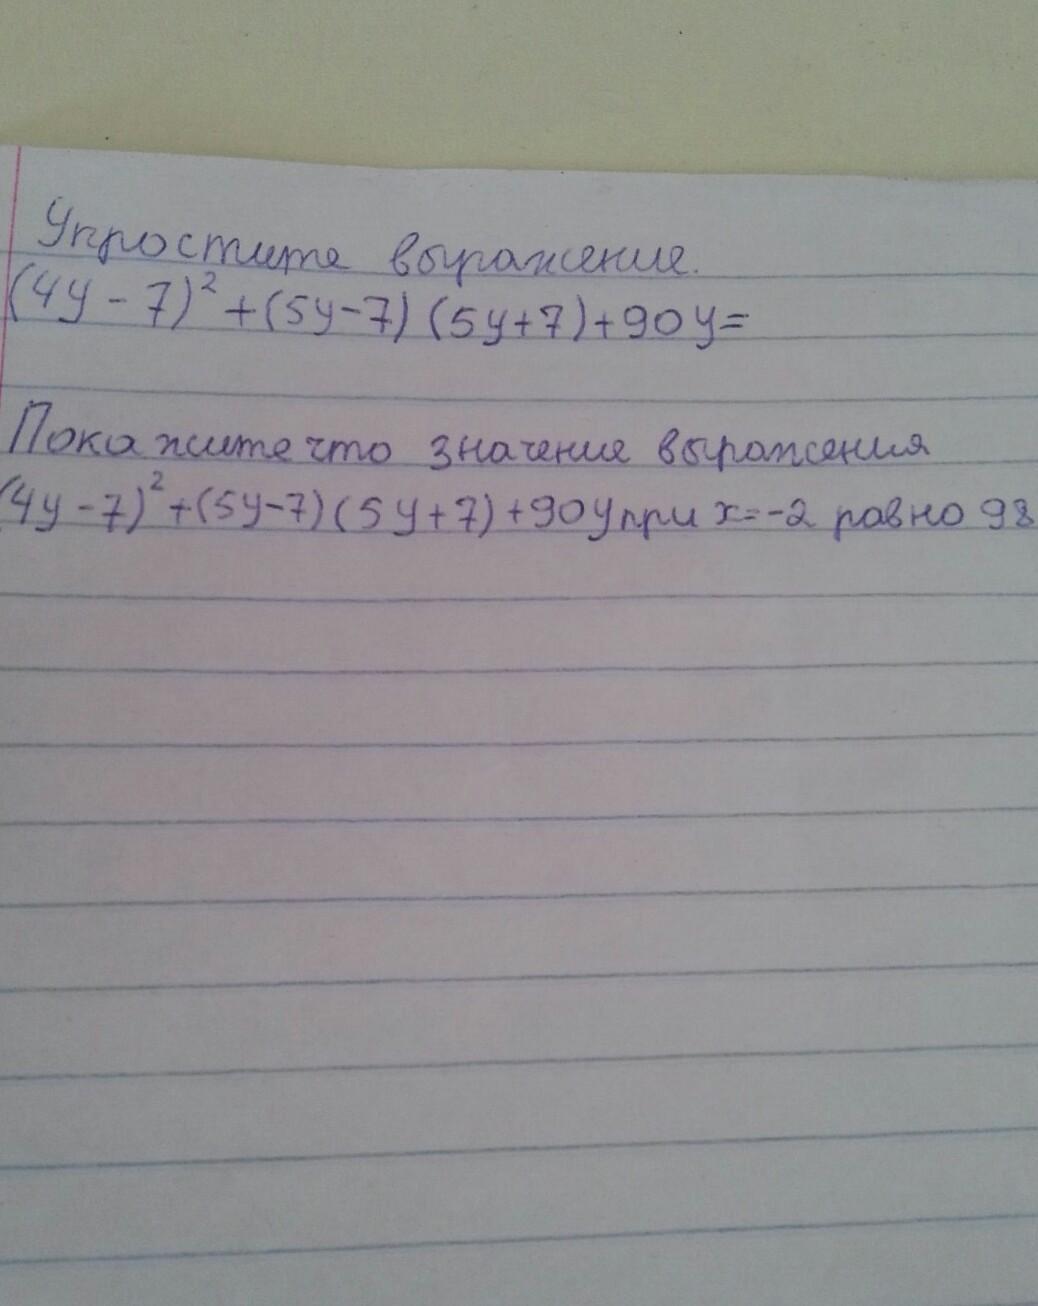 Упростите выражение.
(4y-7)²+(5y-7)(5y+7)+90y=
Покажите что значение выражения
(4y-7)²+(5y-7)(5y+7)+90y при x=-2 равно 98